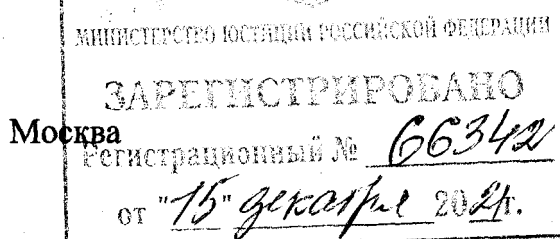 МИНИСТЕРСТВО ЮСТИЦИИ РОССИЙСКОЙ ФЕДЕРАЦИИ
ЗАРЕГИСТРИРОВАНО
Москва
Регистрационный № 66342
от "15" декабря 2021г.